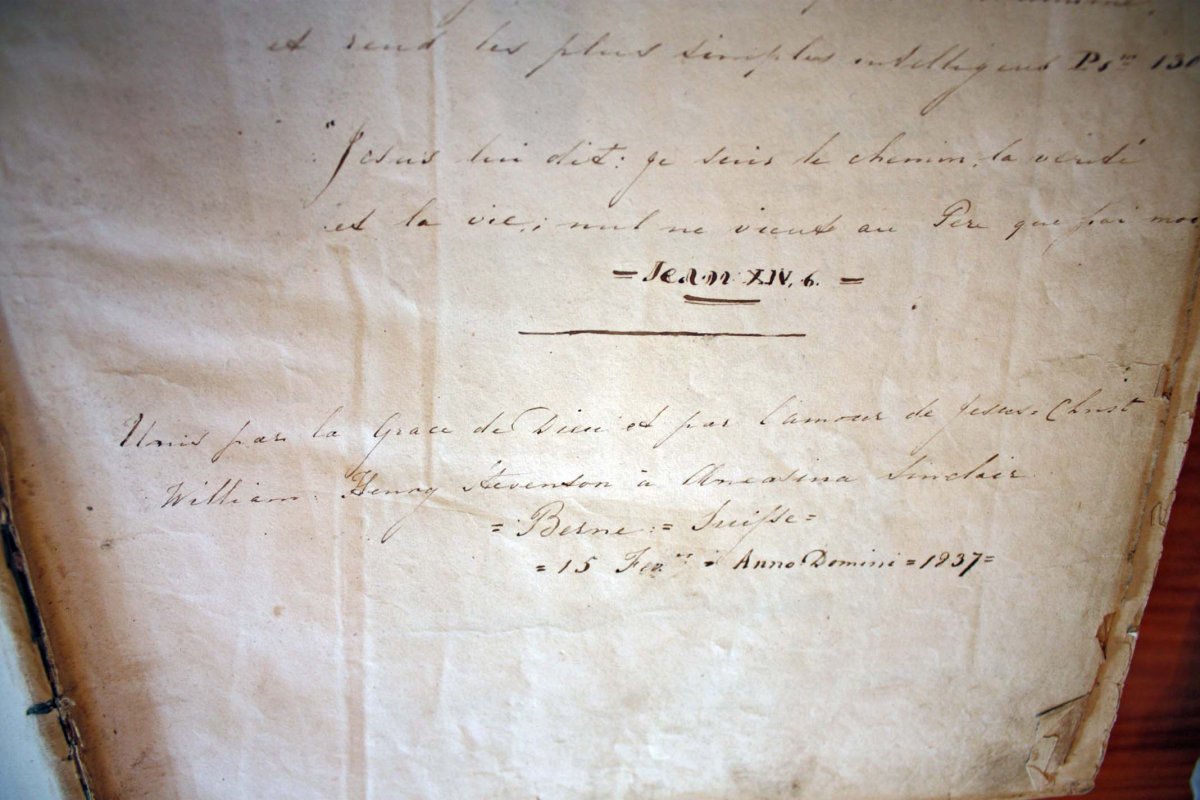 et rend les plus simples intelligens Psm 130
"Jesus lui dit: je suis le chemin, la verité
et la vie,; nul ne vient au Pere que par moi
= Jean XIV, 6. =
Unis par la Grace de Dieu et par l'amour de Jesus-Christ
William Henry Stevenson à Aneasina Sinclair
= Berne = Suisse =
= 15 Fever = Anno Domini = 1837 =